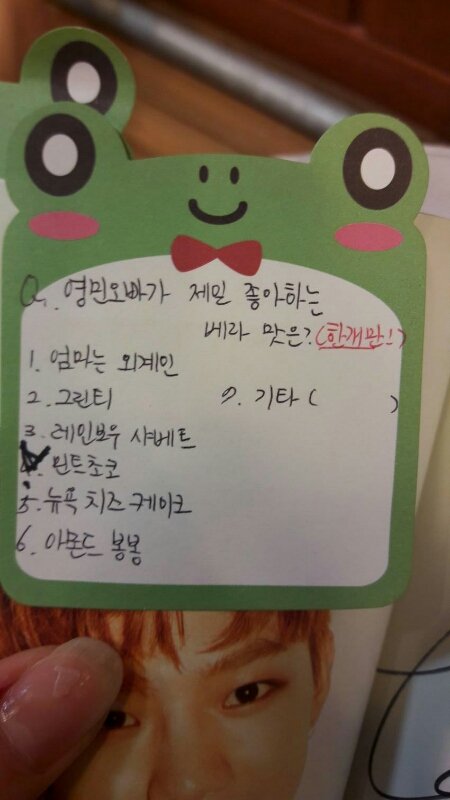 Q. 영민오빠가 제일 좋아하는
베라 맛은? (한개만!)
1. 엄마는 외계인
2. 그린티
7. 기타 ( )
3. 레인보우 샤베트
4. 민트초코
5. 뉴욕 치즈 케이크
6. 아몬드 봉봉